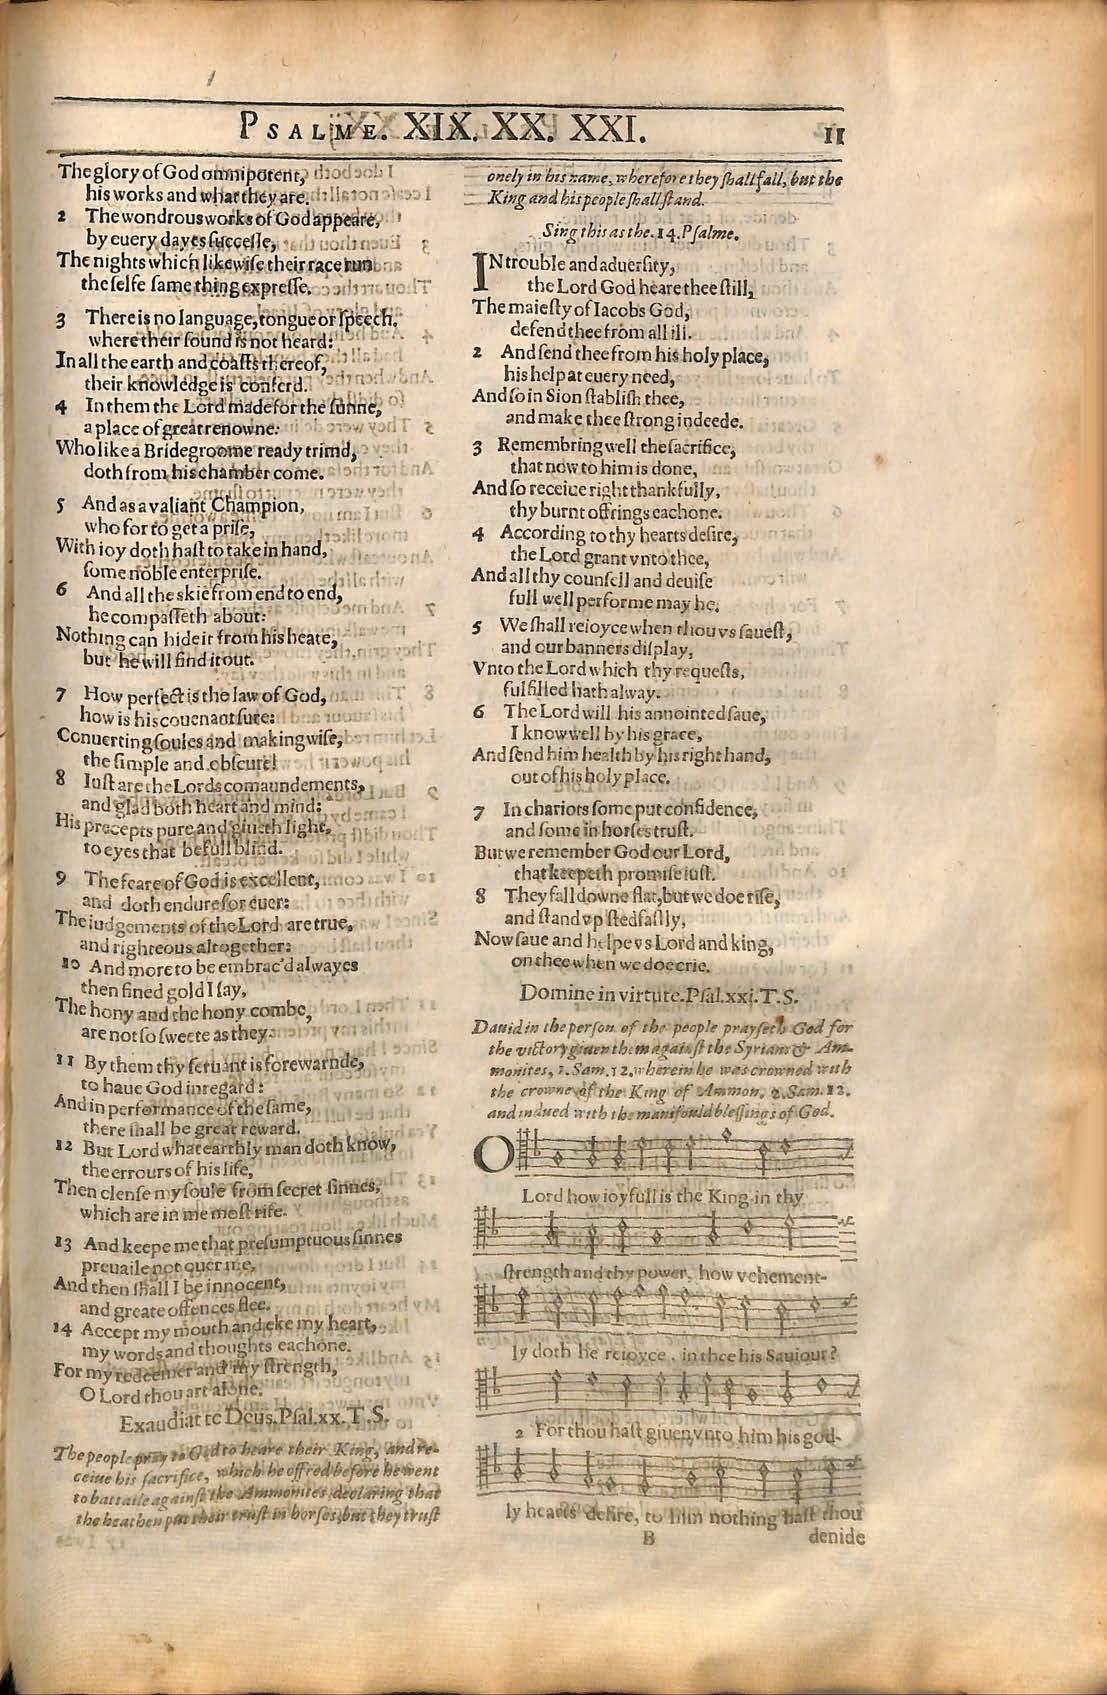 PSALME. XIX. XX. XXI. 11
The glory of God omnipotent,
his works and what they are.
2 The wondrous works of God appeare,
by euery dayes successe,
The nights which likewise their race run
the selfe same thing expresse.
3 There is no language, tongue or speech.
where their sound is not heard:
In all the earth and coasts thereof,
their knowledge is conferd.
4 In them the Lord made for the sunne,
a place of great renowne:
Who like a Bridegroome ready trimd,
doth from his chamber come.
5 And as a valiant Champion,
who for to get a prise,
With ioy doth hast to take in hand,
some noble enterprise.
6 And all the skie from end to end,
he compasseth about:
Nothing can hide it from his heate,
but he will find it out.
7 How perfect is the law of God,
how is his couenant sure:
Conuerting soules and making wise,
the simple and obscure!
8 Iust are the Lords comaundements,
and glad both heart and mind:
His precepts pure and giueth light,
to eyes that be full blind.
9 The feare of God is excellent,
and doth endure for euer:
The iudgements of the Lord are true,
and righteous altogether:
10 And more to be embrac'd alwayes
then fined gold I say,
The hony and the hony combe,
are not so sweete as they.
11 By them thy seruant is forewarnde,
to haue God in regard:
And in performance of the same,
there shall be great reward.
12 But Lord what earthly man doth know,
the errours of his life,
Then clense my soule from secret sinnes,
which are in me most rife.
13 And keepe me that presumptuous sinnes
preuaile not ouer me,
And then shall I be innocent,
and greate offences flee.
14 Accept my mouth and eke my heart,
my words and thoughts eachone.
For my redeemer and my strength,
O Lord thou art alone.
Exaudiat te Deus. Psal.xx. T. S.
The people pray to God to heare their King, and re-
ceiue his sacrifice, which he offred before he went
to battaile against the Ammonites, declaring that
the heathen put their trust in horses, but they trust
onely in his name, wherefore they shall fall, but the
King and his people shall stand.
Sing this as the. 14. Psalme.
IN trouble and aduersity,
the Lord God heare thee still,
The maiesty of Iacobs God,
defend thee from all ill.
2 And send thee from his holy place,
his help at euery need,
And so in Sion stablish thee,
and make thee strong indeede.
3 Remembring well the sacrifice,
that now to him is done,
And so receiue right thankfully,
thy burnt offrings eachone.
4 According to thy hearts desire,
the Lord grant vnto thee,
And all thy counsell and deuise
full well performe may he.
5 We shall reioyce when thou vs sauest,
and our banners display,
Vnto the Lord which thy requests,
fulfilled hath alway.
6 The Lord will his annointed saue,
I know well by his grace,
And send him health by his right hand,
out of his holy place.
7 In chariots some put confidence,
and some in horses trust.
But we remember God our Lord,
that keepeth promise iust.
8 They fall downe flat, but we doe rise,
and stand vp stedfastly,
Now saue and helpe vs Lord and king,
on thee when we doe crie.
Domine in virtute. Psal.xxi. T. S.
Dauid in the person of the people prayseth God for
the victory giuen them against the Syrians & Am-
monites, 1. Sam. 12. wherein he was crowned with
the crowne of the King of Ammon, 2. Sam. 12.
and indued with the manifould blessings of God.
O
Lord how ioyfull is the King in thy
strength and thy power, how vehement-
ly doth he reioyce, in thee his Sauiour?
2 For thou hast giuen vnto him his god-
ly hearts desire, to him nothing hast thou
B denide